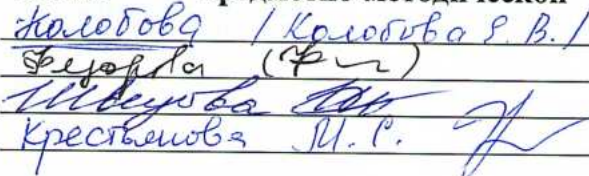 методической
Колобова / Колобова Е. В. /
Федорова
Швецова
Крестьянова М. С.